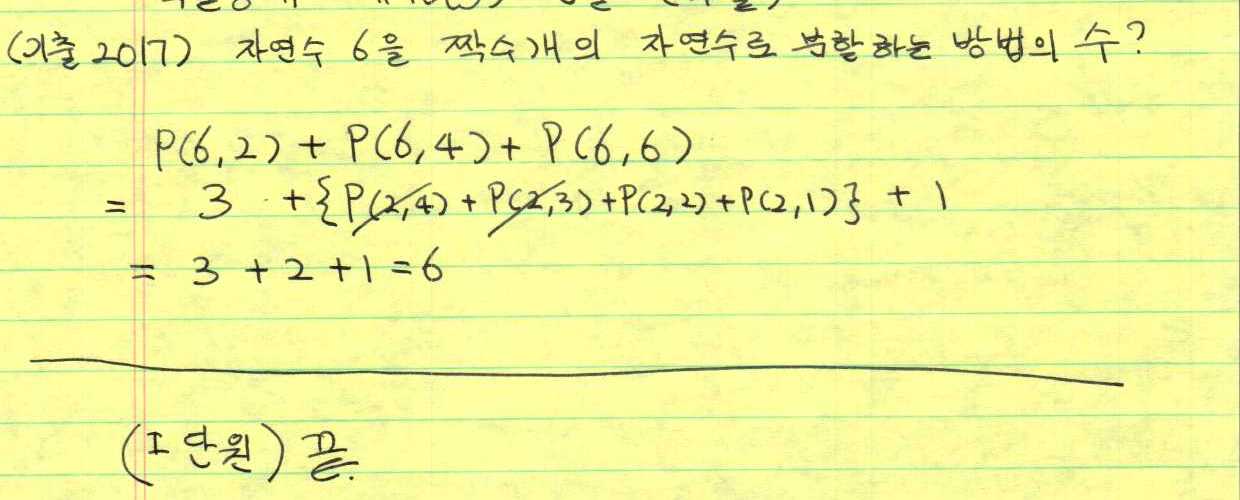 (기출 2017) 자연수 6을 짝수개의 자연수로 분할하는 방법의 수?
P(6,2) + P(6,4) + P(6,6)
= 3 + {P(2,4) + P(2,3) + P(2,2) + P(2,1)} + 1
= 3 + 2 + 1 = 6
(I 단원) 끝.